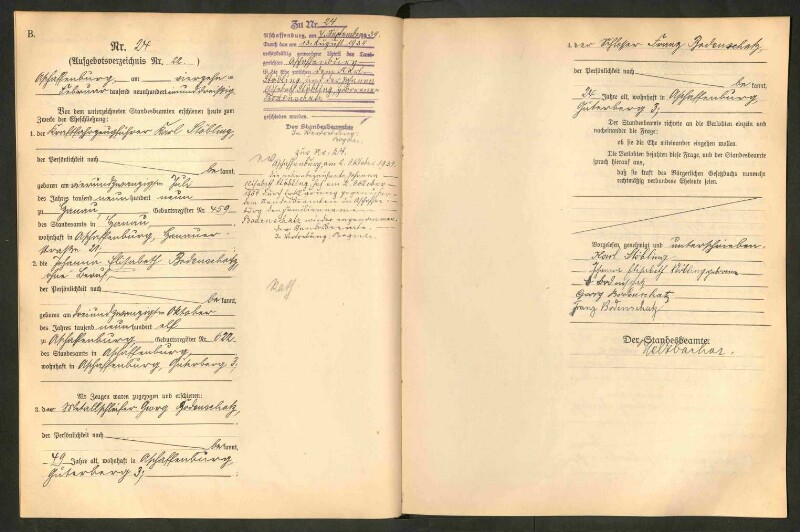 B.
Nr. 24
(Aufgebotsverzeichnis Nr. 22.)
Aschaffenburg, am vierzehn-
Februar tausend neunhundert einunddreißig
Vor dem unterzeichneten Standesbeamten erschienen heute zum
Zwecke der Eheschließung:
1. der Kraftfahrzeugführer Karl Stößling,
der Persönlichkeit nach
be kannt,
geboren am vierundzwanzigsten Juli
des Jahres tausend neunhundert neun
zu Hanau, Geburtsregister Nr. 459
des Standesamts in Hanau
wohnhaft in Aschaffenburg, Hanauer-
straße 21,
2. die Johanna Elisabeth Bodenschatz,
ohne Beruf,
der Persönlichkeit nach
be kannt,
geboren am dreiundzwanzigsten Oktober
des Jahres tausend neunhundert elf
zu Aschaffenburg Geburtsregister Nr. 622
des Standesamts in Aschaffenburg,
wohnhaft in Aschaffenburg, Güterberg 3,
Als Zeugen waren zugezogen und erschienen:
3. der Metallschleifer Georg Bodenschatz,
der Persönlichkeit nach
be kannt,
49 Jahre alt, wohnhaft in Aschaffenburg
Güterberg 3;
Zu Nr. 24
Aschaffenburg, am 4. September 34.
Durch das am 13. August 1934
rechtskräftig gewordene Urteil des Land-
gerichts Aschaffenburg
ist die Ehe zwischen dem Karl
Stößling und der Johanna
Elisabeth Stößling geborene
Bodenschatz
geschieden worden.
Der Standesbeamte
In Vertretung:
zur Nr. 24.
Aschaffenburg am 6. Oktober 1934.
Die unterzeichnete Johanna
Elisabeth Stößling hat am 2. Oktober
1934 durch Erklärung gegenüber
dem Standesbeamten in Aschaffen-
burg den Familiennamen
Bodenschatz wieder angenommen.
Der Standesbeamte.
In Vertretung:
4. der Schlosser Franz Bodenschatz
der Persönlichkeit nach
be kannt,
24 Jahre alt, wohnhaft in Aschaffenburg
Güterberg 3;
Der Standesbeamte richtete an die Verlobten einzeln und
nacheinander die Frage:
ob sie die Ehe miteinander eingehen wollen.
Die Verlobten bejahten diese Frage, und der Standesbeamte
sprach hierauf aus,
daß sie kraft des Bürgerlichen Gesetzbuchs nunmehr
rechtmäßig verbundene Eheleute seien.
Vorgelesen, genehmigt und unterschrieben.
Karl Stößling
Johanna Elisabeth Stößling geborene
Bodenschatz
Georg Bodenschatz
Franz Bodenschatz
Der Standesbeamte.